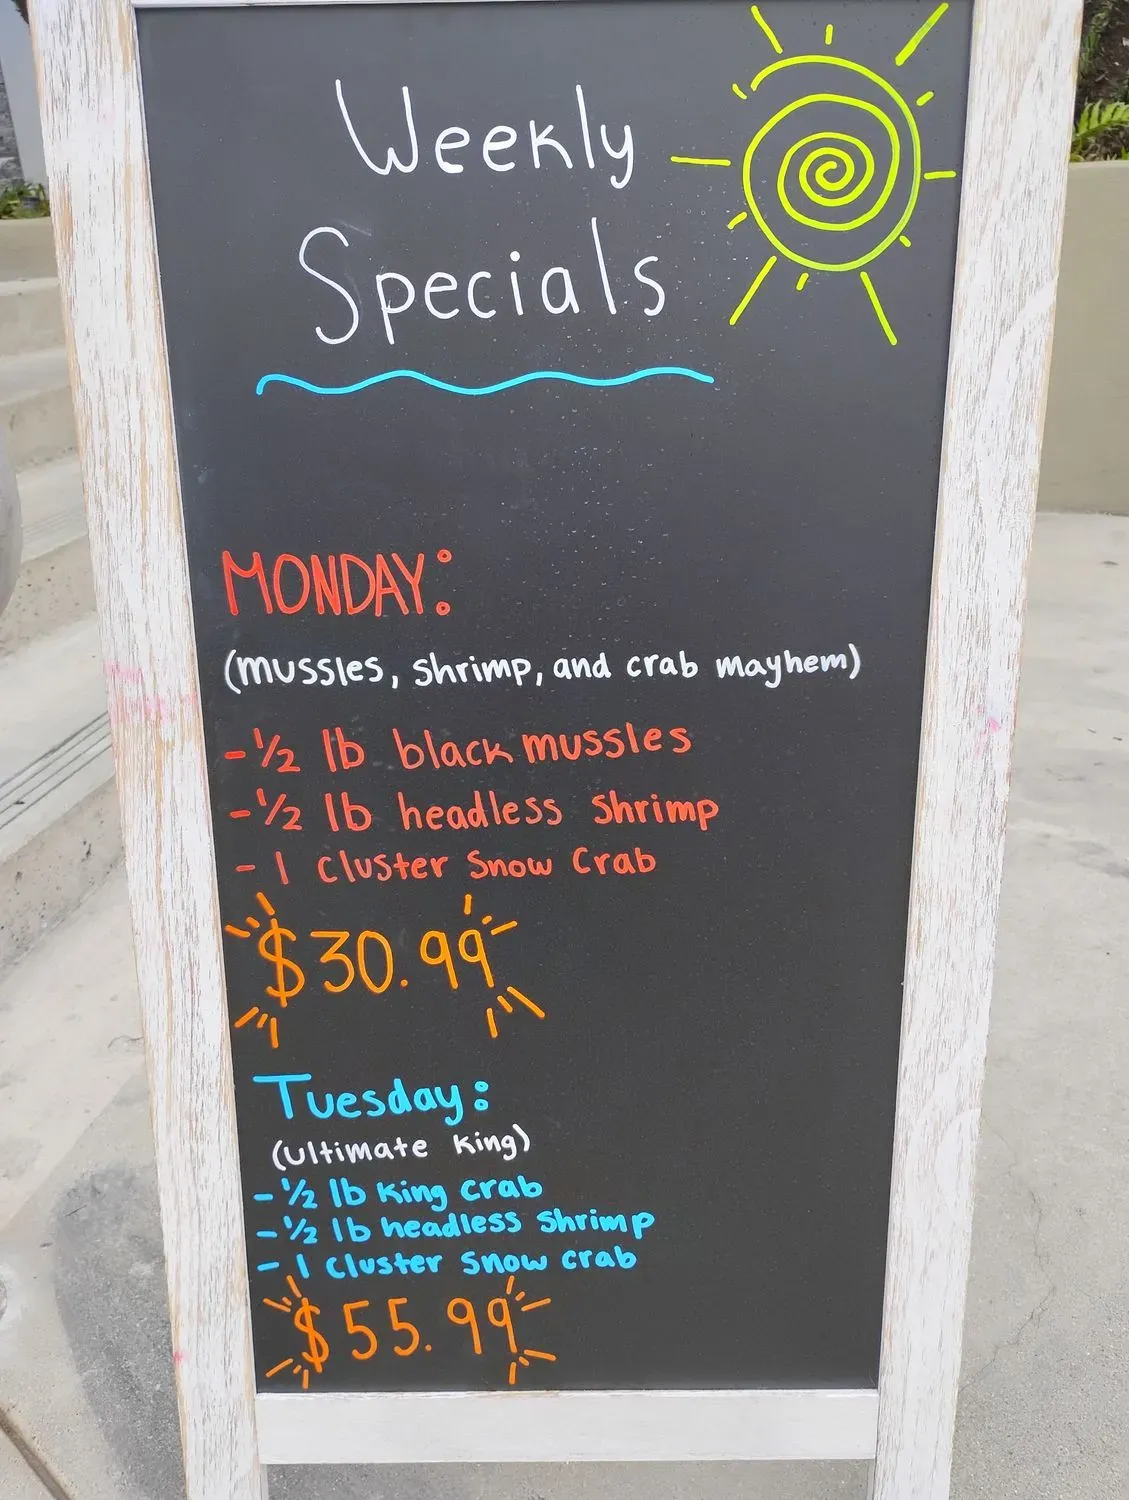 Weekly
Specials
MONDAY:
(mussles, shrimp, and crab mayhem)
-1/2 lb black mussles
-1/2 lb headless shrimp
- 1 cluster Snow Crab
$30.99
Tuesday:
(ultimate king)
-1/2 lb king crab
-1/2 lb headless shrimp
- 1 cluster snow crab
$55.99